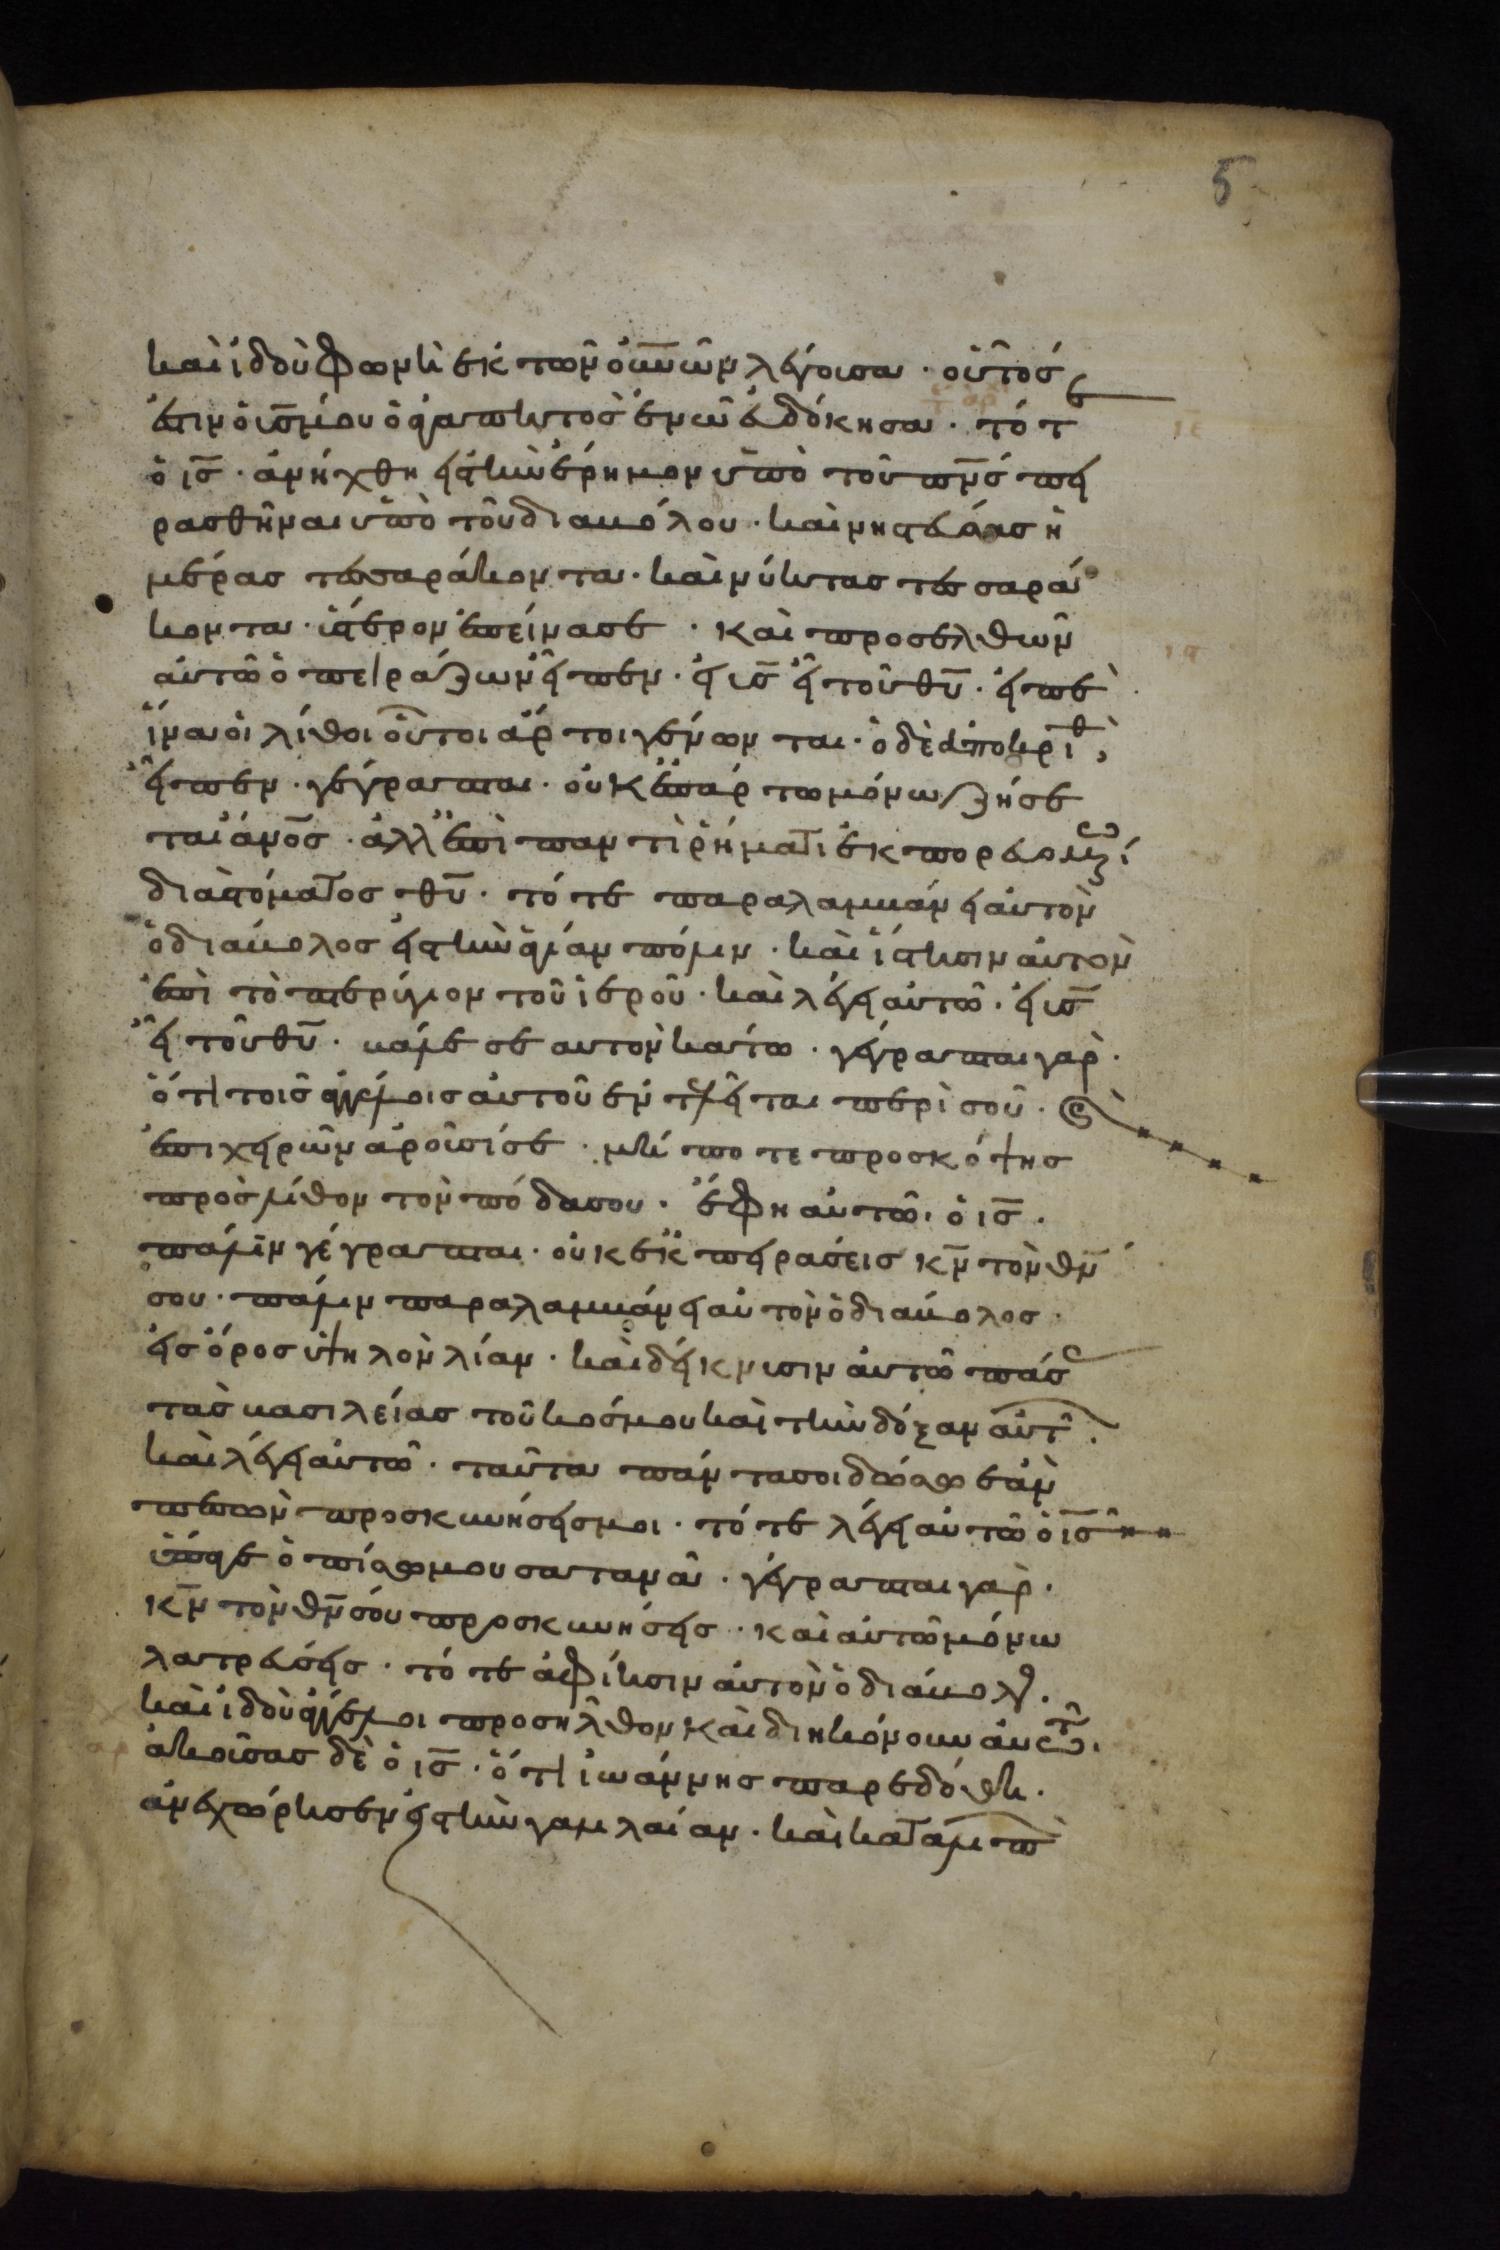 5
καὶ ἰδοὺ φωνὴ ἐκ τῶν οὐνῶν λέγουσα · οὗτός
ἐστιν ὁ υἱς μου ὁ ἀγαπητὸς ἐν ὧ εὐδόκησα · τότε
ὁ ις · ἀνήχθη εἰς τὴν ἔρημον ὑπὸ τοῦ πνς πει
ρασθῆναι ὑπὸ τοῦ διαβόλου · καὶ νηστεύσας ἡ
μέρας τεσσαράκοντα · καὶ νύκτας τεσσαρά
κοντα · ὕστερον ἐπείνασε · καὶ προσελθὼν
αὐτῶ ὁ πειράζων εἶπεν · εἰ υἱς εἶ τοῦ θυ · εἰπὲ
ἵνα οἱ λίθοι οὗτοι ἄρτοι γένωνται · ὁ δὲ ἀποκριθ
εἶπεν · γέγραπται · οὐκ ἐπ ἄρτω μόνω ζήσε
ται ἀνος · ἀλλ ἐπὶ παντὶ ῥήματι ἐκπορευομένω
διὰ στόματος θυ · τότε παραλαμβάνει αὐτὸν
ὁ διάβολος εἰς τὴν ἁγίαν πόλιν · καὶ ἵστησιν αὐτὸν
ἐπὶ τὸ πτερύγιον τοῦ ἱεροῦ · καὶ λέγει αὐτῶ · εἰ υἱς
εἶ τοῦ θυ · βάλε σεαυτὸν κάτω · γέγραπται γὰρ ·
ὅτι τοῖς ἀγγέλοις αὐτοῦ ἐντελεῖται περὶ σοῦ · καὶ
ἐπὶ χειρῶν ἀροῦσί σε · μήποτε προσκόψης
πρὸς λίθον τὸν πόδα σου · ἔφη αὐτῶ · ὁ ις ·
πάλιν γέγραπται · οὐκ ἐκπειράσεις κν τὸν θν
σου · πάλιν παραλαμβάνει αὐτὸν ὁ διάβολος ·
εἰς ὄρος ὑψηλὸν λίαν · καὶ δείκνυσιν αὐτῶ πάσ
τὰς βασιλείας τοῦ κόσμου καὶ τὴν δόξαν αὐτ ·
καὶ λέγει αὐτῶ · ταῦτα πάντα σοι δώσω ἐὰν
πεσὼν προσκυνήσεις μοι · τότε λέγει αὐτῶ ὁ ις
ὕπαγε ὀπίσω μου σατανᾶ · γέγραπται γὰρ ·
κν τὸν θν σου προσκυνήσεις · καὶ αὐτῶ μόνω
λατρεύσεις · τότε ἀφίησιν αὐτὸν ὁ διάβολ ·
καὶ ἰδοὺ ἄγγελοι προσῆλθον καὶ διηκόνουν αὐτῶ ·
ἀκούσας δὲ ὁ ις · ὅτι ἰωάννης παρεδόθη ·
ἀνεχώρησεν εἰς τὴν γαλιλαίαν · καὶ καταλιπὼ